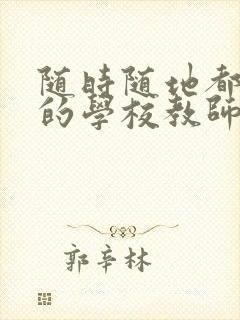 随時随地都
的學校教師
郭辛林